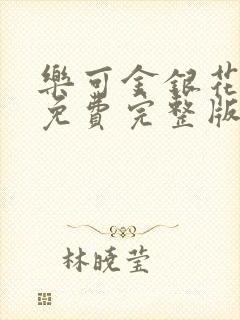 樂可金銀花
免費完整版
林曉莹